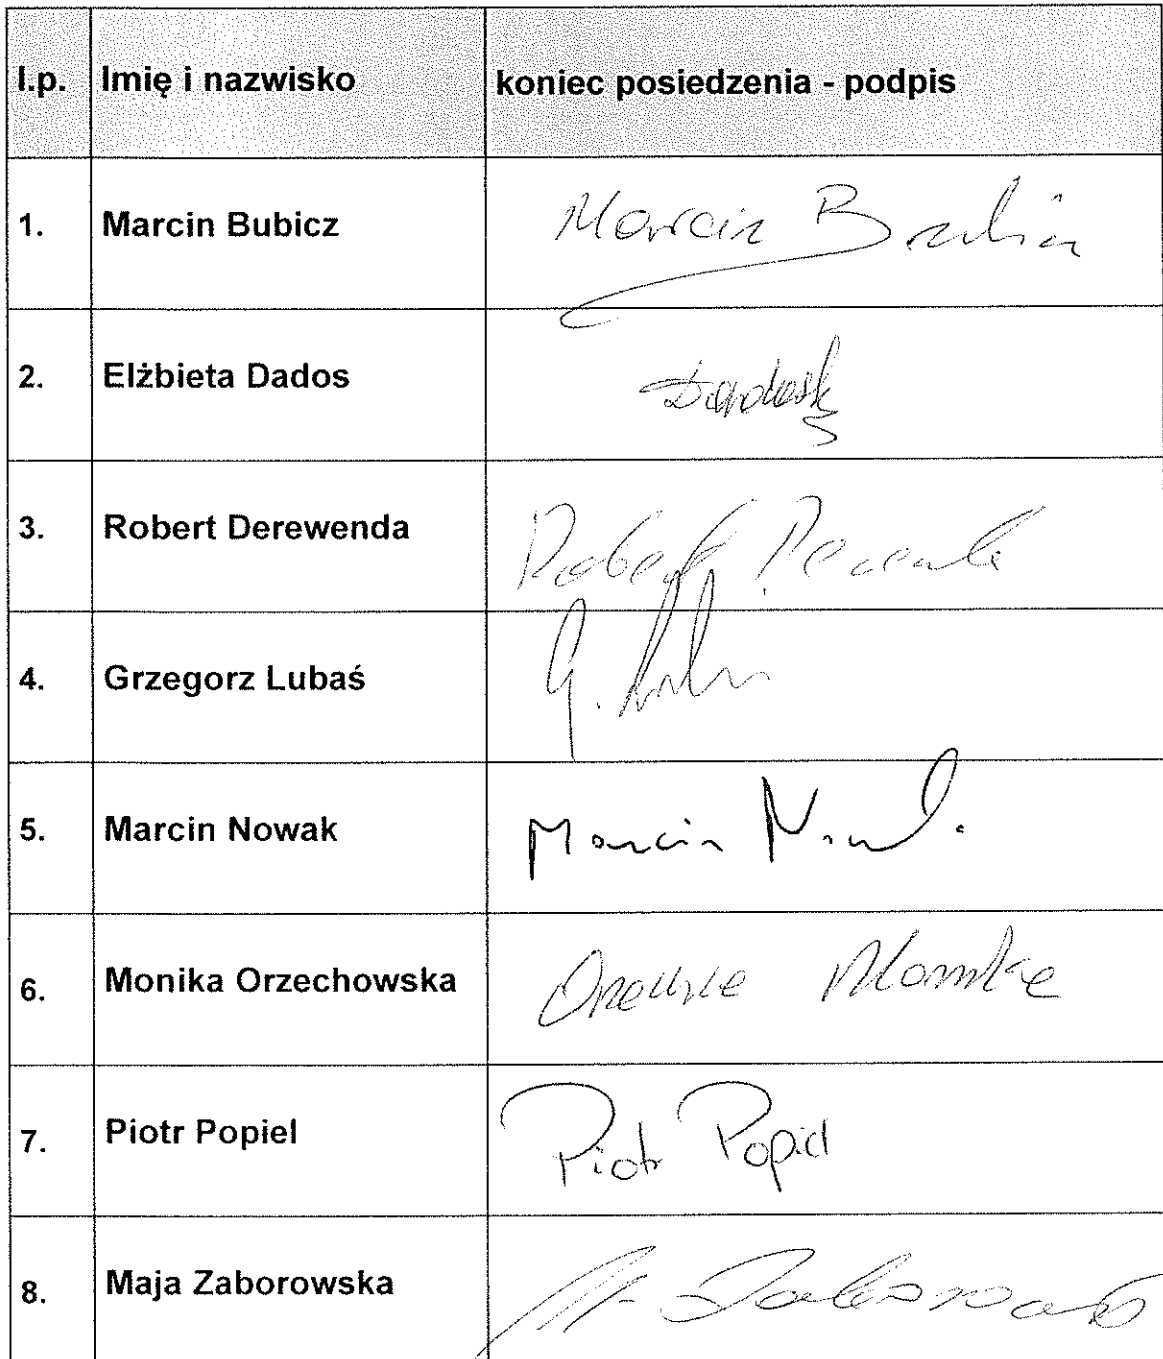 l.p. Imię i nazwisko koniec posiedzenia - podpis
1. Marcin Bubicz Marcin
2. Elżbieta Dados
3. Robert Derewenda Robert
4. Grzegorz Lubaś G.
5. Marcin Nowak Marcin
6. Monika Orzechowska
7. Piotr Popiel Piotr Popiel
8. Maja Zaborowska M. Zaborowska